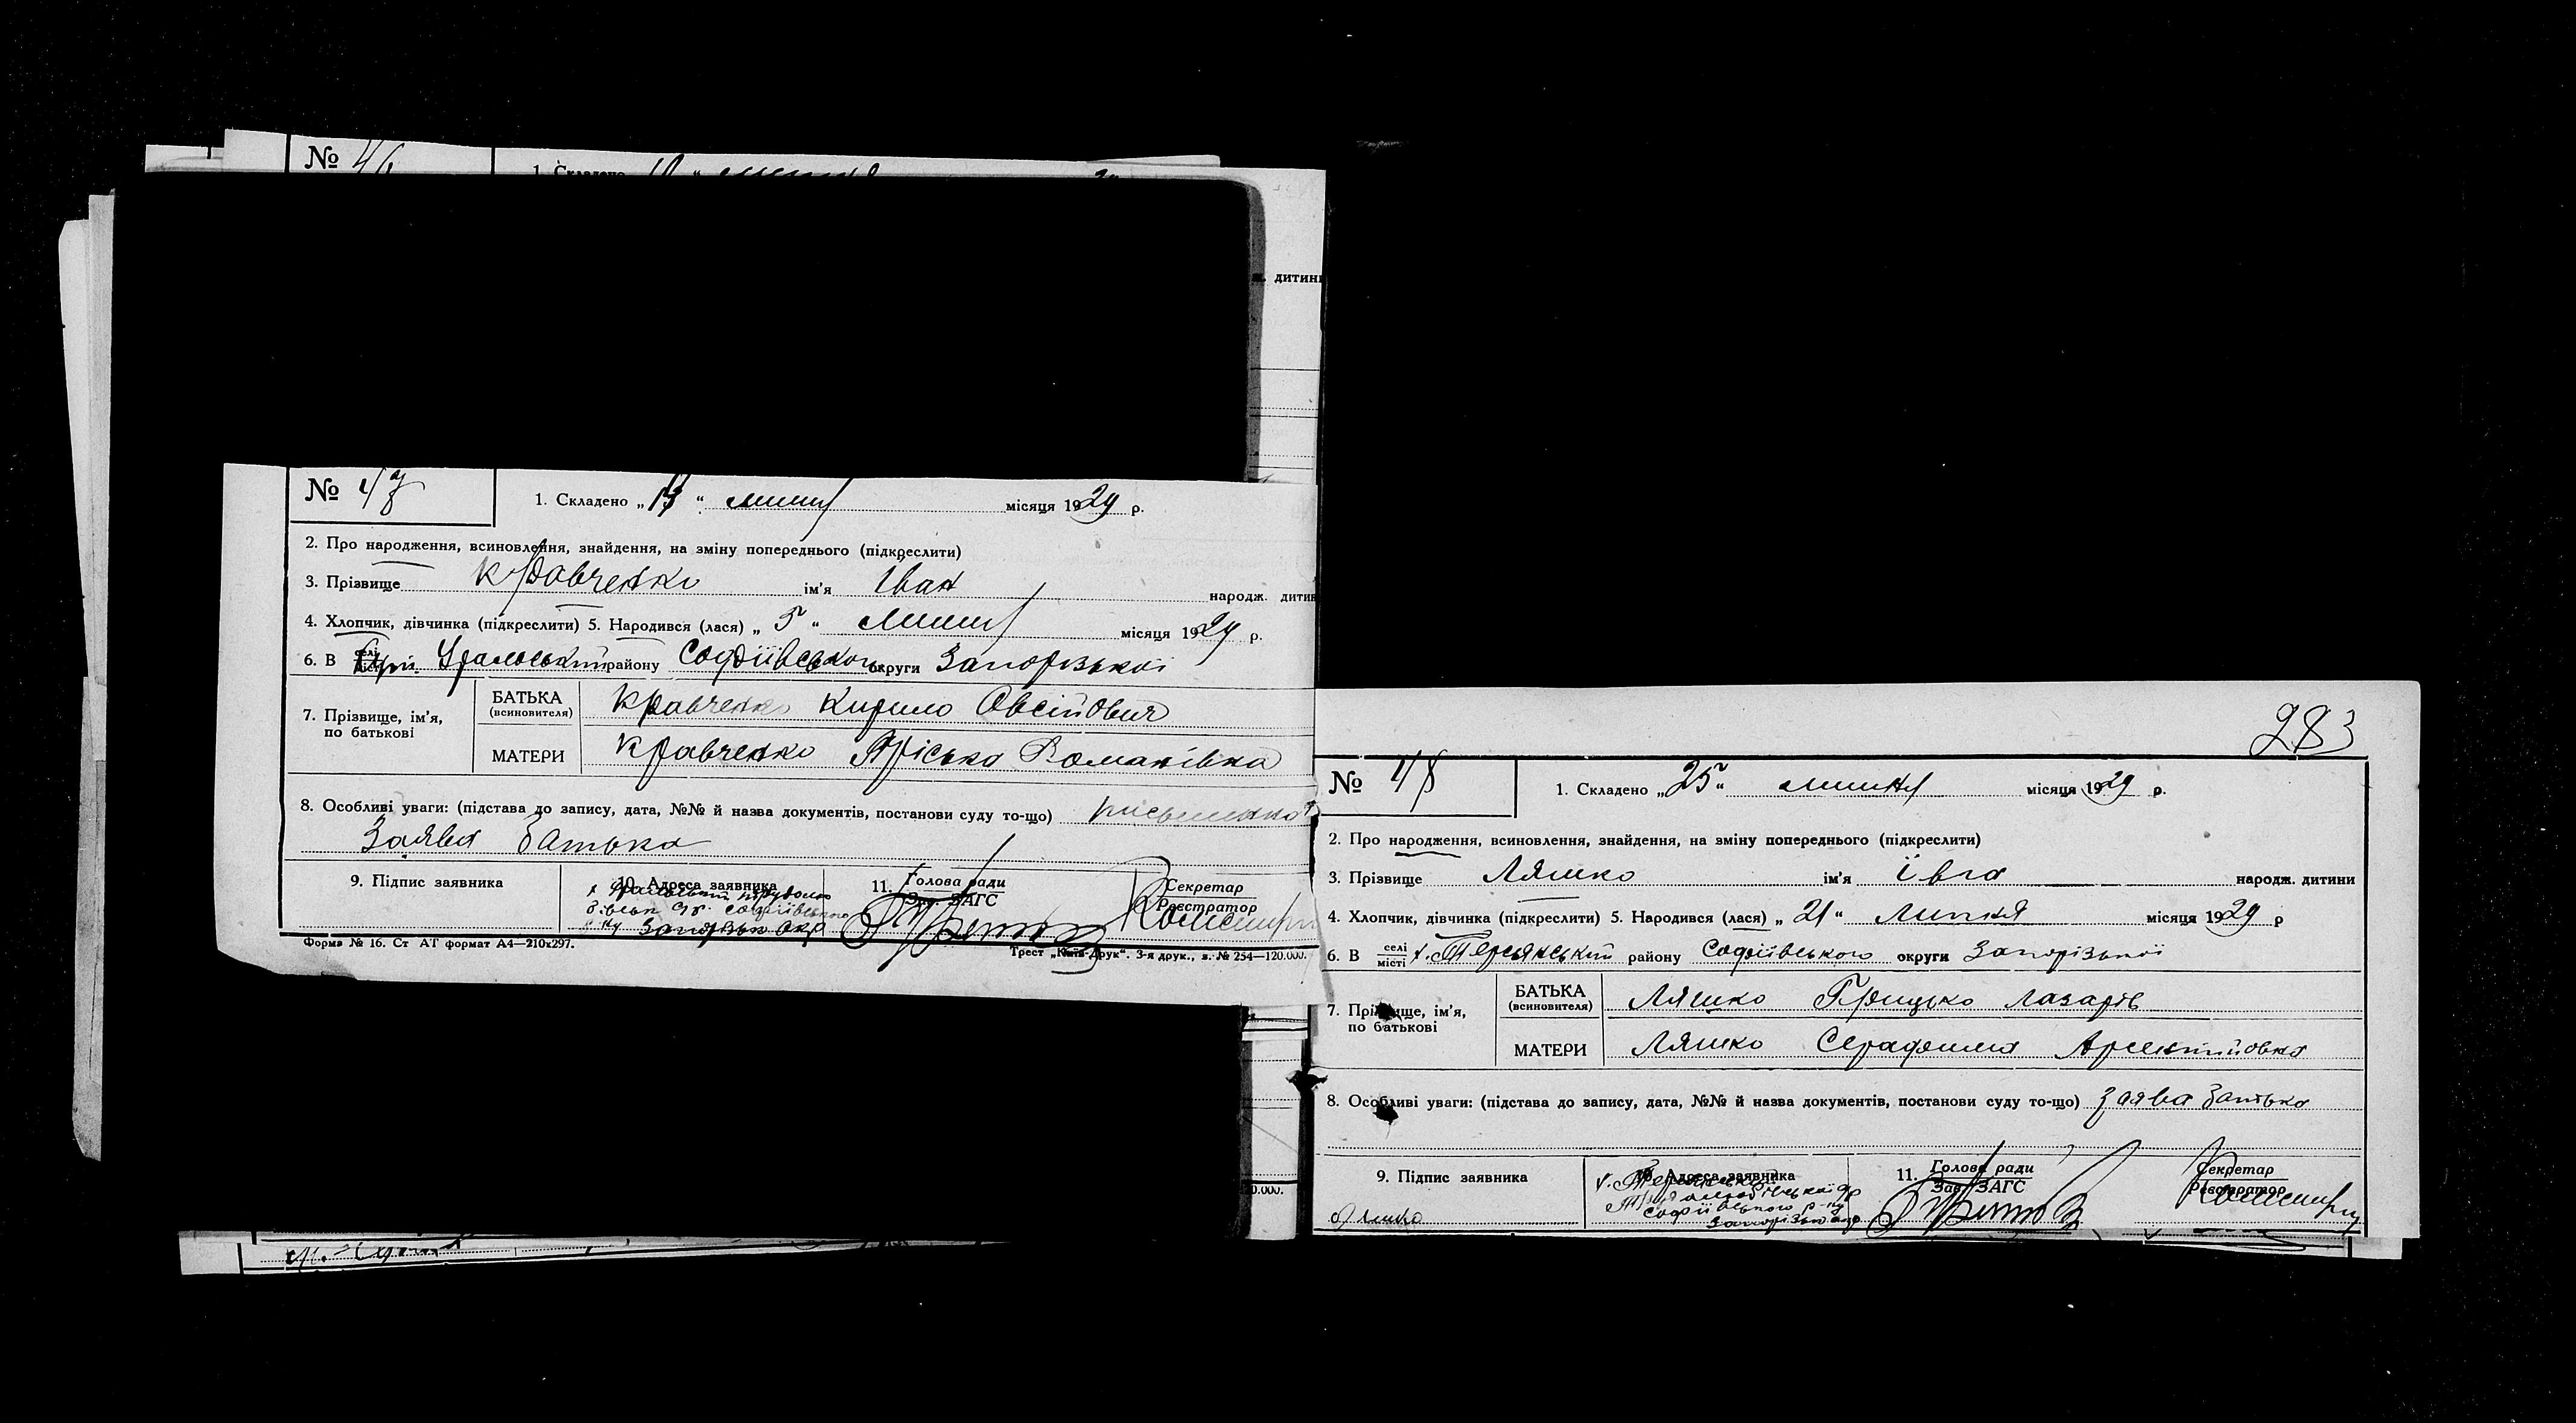 № 46
1. Складено
дитин
№ 47
1. Складено „13“ липня місяця 1929 р.
2. Про народження, всиновлення, знайдення, на зміну попереднього (підкреслити)
3. Прізвище Кравченко ім'я Іван народж. дитин
4. Хлопчик, дівчинка (підкреслити) 5. Народився (лася) „5“ липня місяця 1929 р.
6. В селі місті Уральський району Софіївського округи Запорізької
7. Прізвище, ім'я, по батькові
БАТЬКА (всиновителя) Кравченко Кирило Овсійович
МАТЕРИ Кравченко Пріська Романівна
8. Особливі уваги: (підстава до запису, дата, №№ й назва документів, постанови суду то-що)
Заява батька
9. Підпис заявника
10. Адреса заявника
Софіївського
Запорізьк окр
11. Голова ради
Зав. ЗАГС
Секретар
Реєстратор
Форма № 16. Ст АТ формат А4—210х297.
Трест „Київ-Друк“. 3-я друк., з. № 254—120.000.
0.000.
283
№ 48
1. Складено „25“ липня місяця 1929 р.
2. Про народження, всиновлення, знайдення, на зміну попереднього (підкреслити)
3. Прізвище Ляшко ім'я Івга народж. дитини
4. Хлопчик, дівчинка (підкреслити) 5. Народився (лася) „21“ Липня місяця 1929 р
6. В селі місті х. Терсянський району Софіївського округи Запорізької
7. Прізвище, ім'я, по батькові
БАТЬКА (всиновителя) Ляшко Грицько Лазарів
МАТЕРИ Ляшко Серафима Арсентійовна
8. Особливі уваги: (підстава до запису, дата, №№ й назва документів, постанови суду то-що) Заява батька
9. Підпис заявника
Ляшко
10. Адреса заявника
х. Терсянський
Софіївського р-ну
Запорізьк окр
11. Голова ради
Зав. ЗАГС
Секретар
Реєстратор